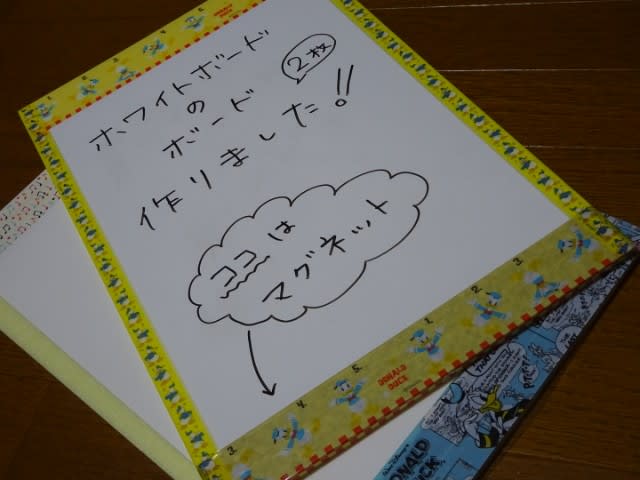 ホワイトボード
の
ボード
2枚
作りました!!
ココは
マグネット
3. 4. 5. 1. 2. 3.
DONALD
DUCK
DONALD
DUCK